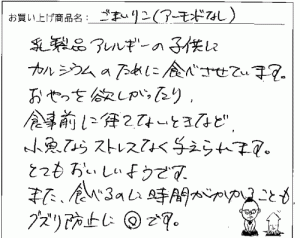 お買い上げ商品名：ごまいりこ（アーモンドなし）
乳製品アレルギーの子供に
カルシウムのために食べさせています。
おやつを欲しがったり、
食事前に待てないときなど、
小魚ならストレスなく与えられます。
とてもおいしいようです。
また、食べるのに時間がかかることも
グズリ防止に◎です。